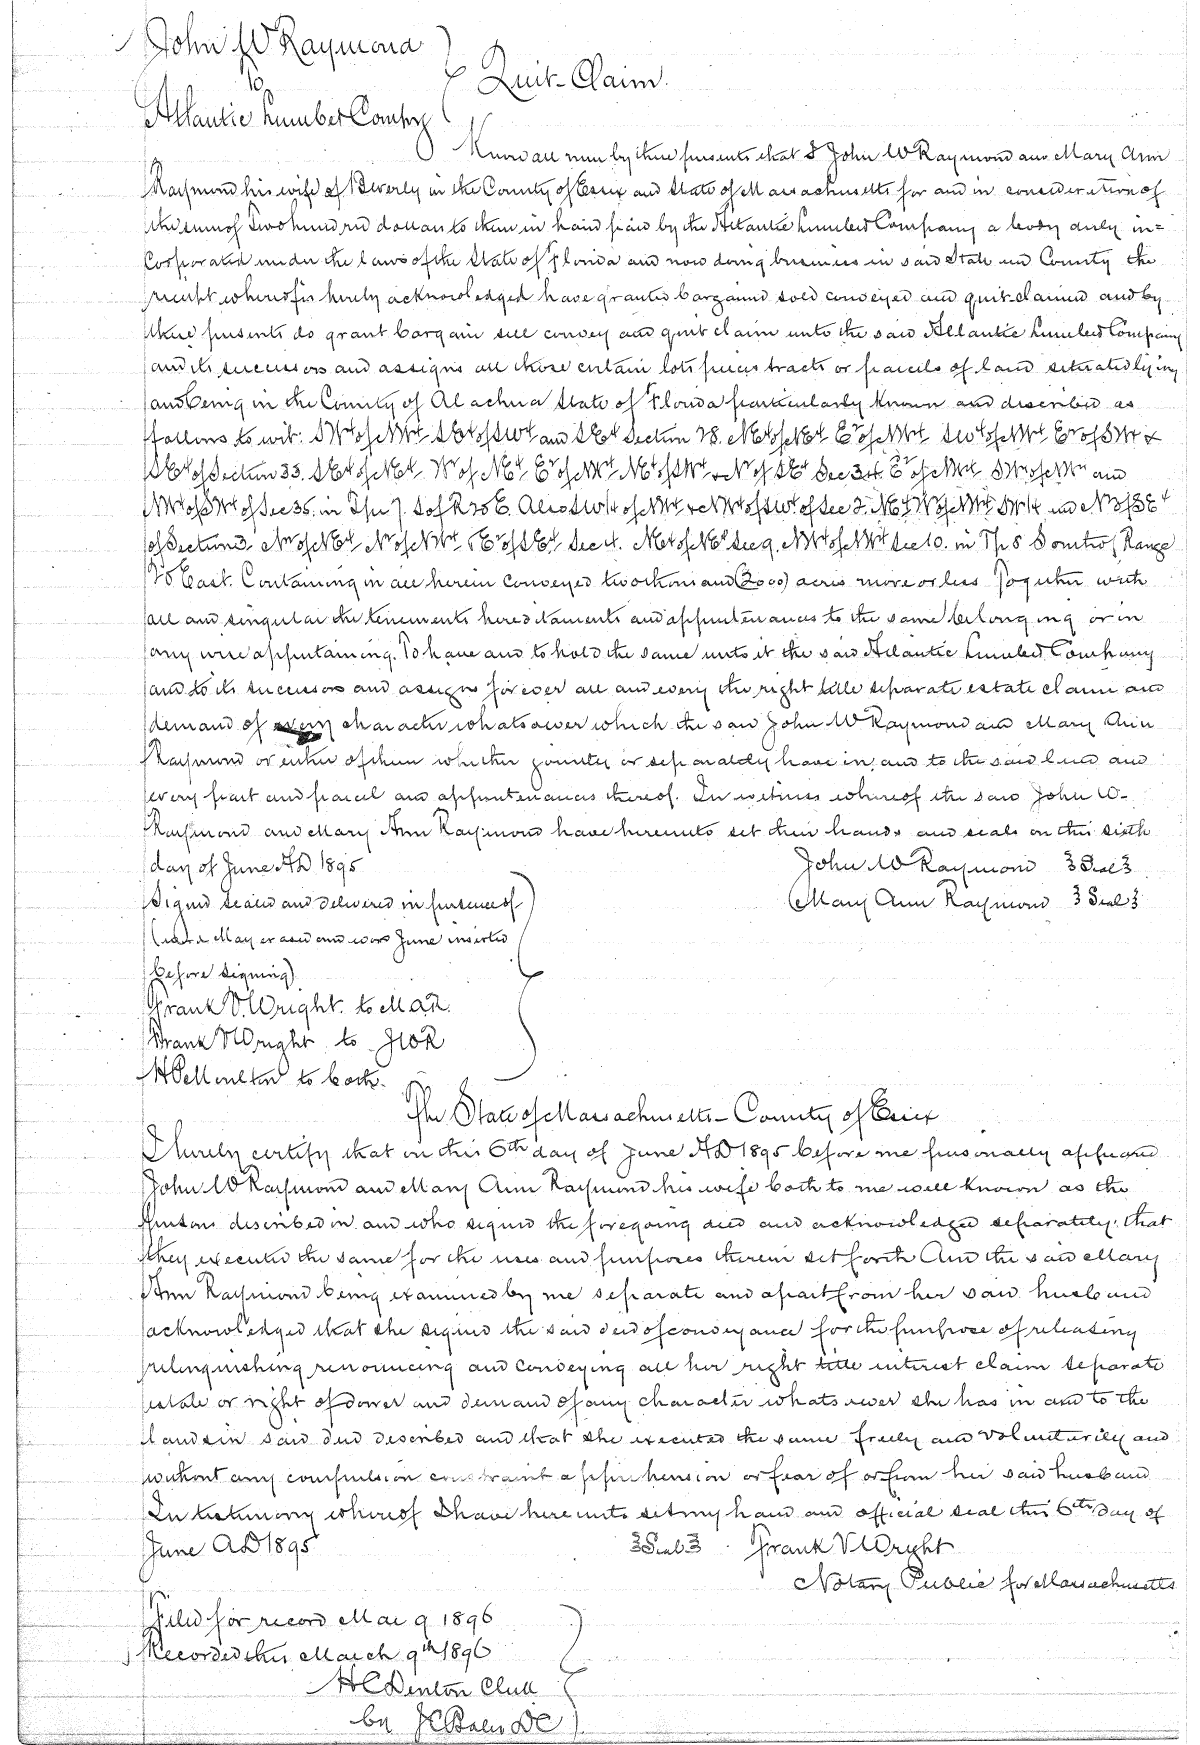 John W Raymond
to
Quit-Claim.
Atlantic Lumber Compy
Know all men by these presents that I John W Raymond and Mary Ann
Raymond his wife of Beverly in the County of Essex and State of Massachusetts for and in consideration of
the sum of Two hundred dollars to them in hand paid by the Atlantic Lumber Company a body duly in=
corporated under the laws of the State of Florida and now doing business in said State and County the
receipt whereof is hereby acknowledged have granted bargained sold conveyed and quit-claimed and by
these presents do grant bargain sell convey and quit claim unto the said Atlantic Lumber Company
and its successors and assigns all those certain lots pieces tracts or parcels of land situated lying
and being in the County of Alachua State of Florida particularly known and described as
follows to wit: SW¼ of NW¼ SE¼ of SW¼ and SE¼ Section 28. NE¼ of NE¼ E½ of NW¼ SW¼ of NW¼ E½ of SW¼ &
SE¼ of Section 33. SE¼ of NE¼ W½ of NE¼ E½ of NW¼ NE¼ of SW¼ & N½ of SE¼ Sec 34. E½ of NW¼ SW¼ of NW¼ and
NW¼ of SW¼ of Sec 35. in Tp 7. S of R 20 E. Also SW¼ of NW¼ & NW¼ of SW¼ of Sec 2. NE¼ W½ of NW¼ SW¼ and N½ of SE¼
of Section 3. N½ of NE¼ N½ of NW¼ E½ of SE¼ Sec 4. NE¼ of NE¼ Sec 9. NW¼ of NW¼ Sec 10. in Tp 8 South of Range
20 East. Containing in all herein conveyed two thousand (2000) acres more or less Together with
all and singular the tenements hereditaments and appurtenances to the same belonging or in
any wise appertaining. To have and to hold the same unto it the said Atlantic Lumber Company
and to its successors and assigns forever all and every the right title separate estate claim and
demand of every character whatsoever which the said John W Raymond and Mary Ann
Raymond or either of them whether jointly or separately have in and to the said land and
every part and parcel and appurtenances thereof. In witness whereof the said John W-
Raymond and Mary Ann Raymond have hereunto set their hands and seals on this sixth
day of June AD 1895
John W Raymond Seal
Signed sealed and delivered in presence of
Mary Ann Raymond Seal
(word May erased and word June inserted
before signing)
Frank V. Wright. to M A R.
Frank V Wright to J W R
H P Moulton to both.
The State of Massachusetts - County of Essex
I hereby certify that on this 6th day of June AD 1895 before me personally appeared
John W Raymond and Mary Ann Raymond his wife both to me well known as the
persons described in and who signed the foregoing deed and acknowledged separately that
they executed the same for the uses and purposes therein set forth And the said Mary
Ann Raymond being examined by me separate and apart from her said husband
acknowledged that she signed the said deed of conveyance for the purpose of releasing
relinquishing renouncing and conveying all her right title interest claim separate
estate or right of dower and demand of any character whatsoever she has in and to the
lands in said deed described and that she executed the same freely and voluntarily and
without any compulsion constraint apprehension or fear of or from her said husband
In testimony whereof I have hereunto set my hand and official seal this 6th day of
June AD 1895 Seal Frank V Wright
Notary Public for Massachusetts
Filed for record Mar 9 1896
Recorded this March 9th 1896
H C Denton Clerk
by J C Bales DC